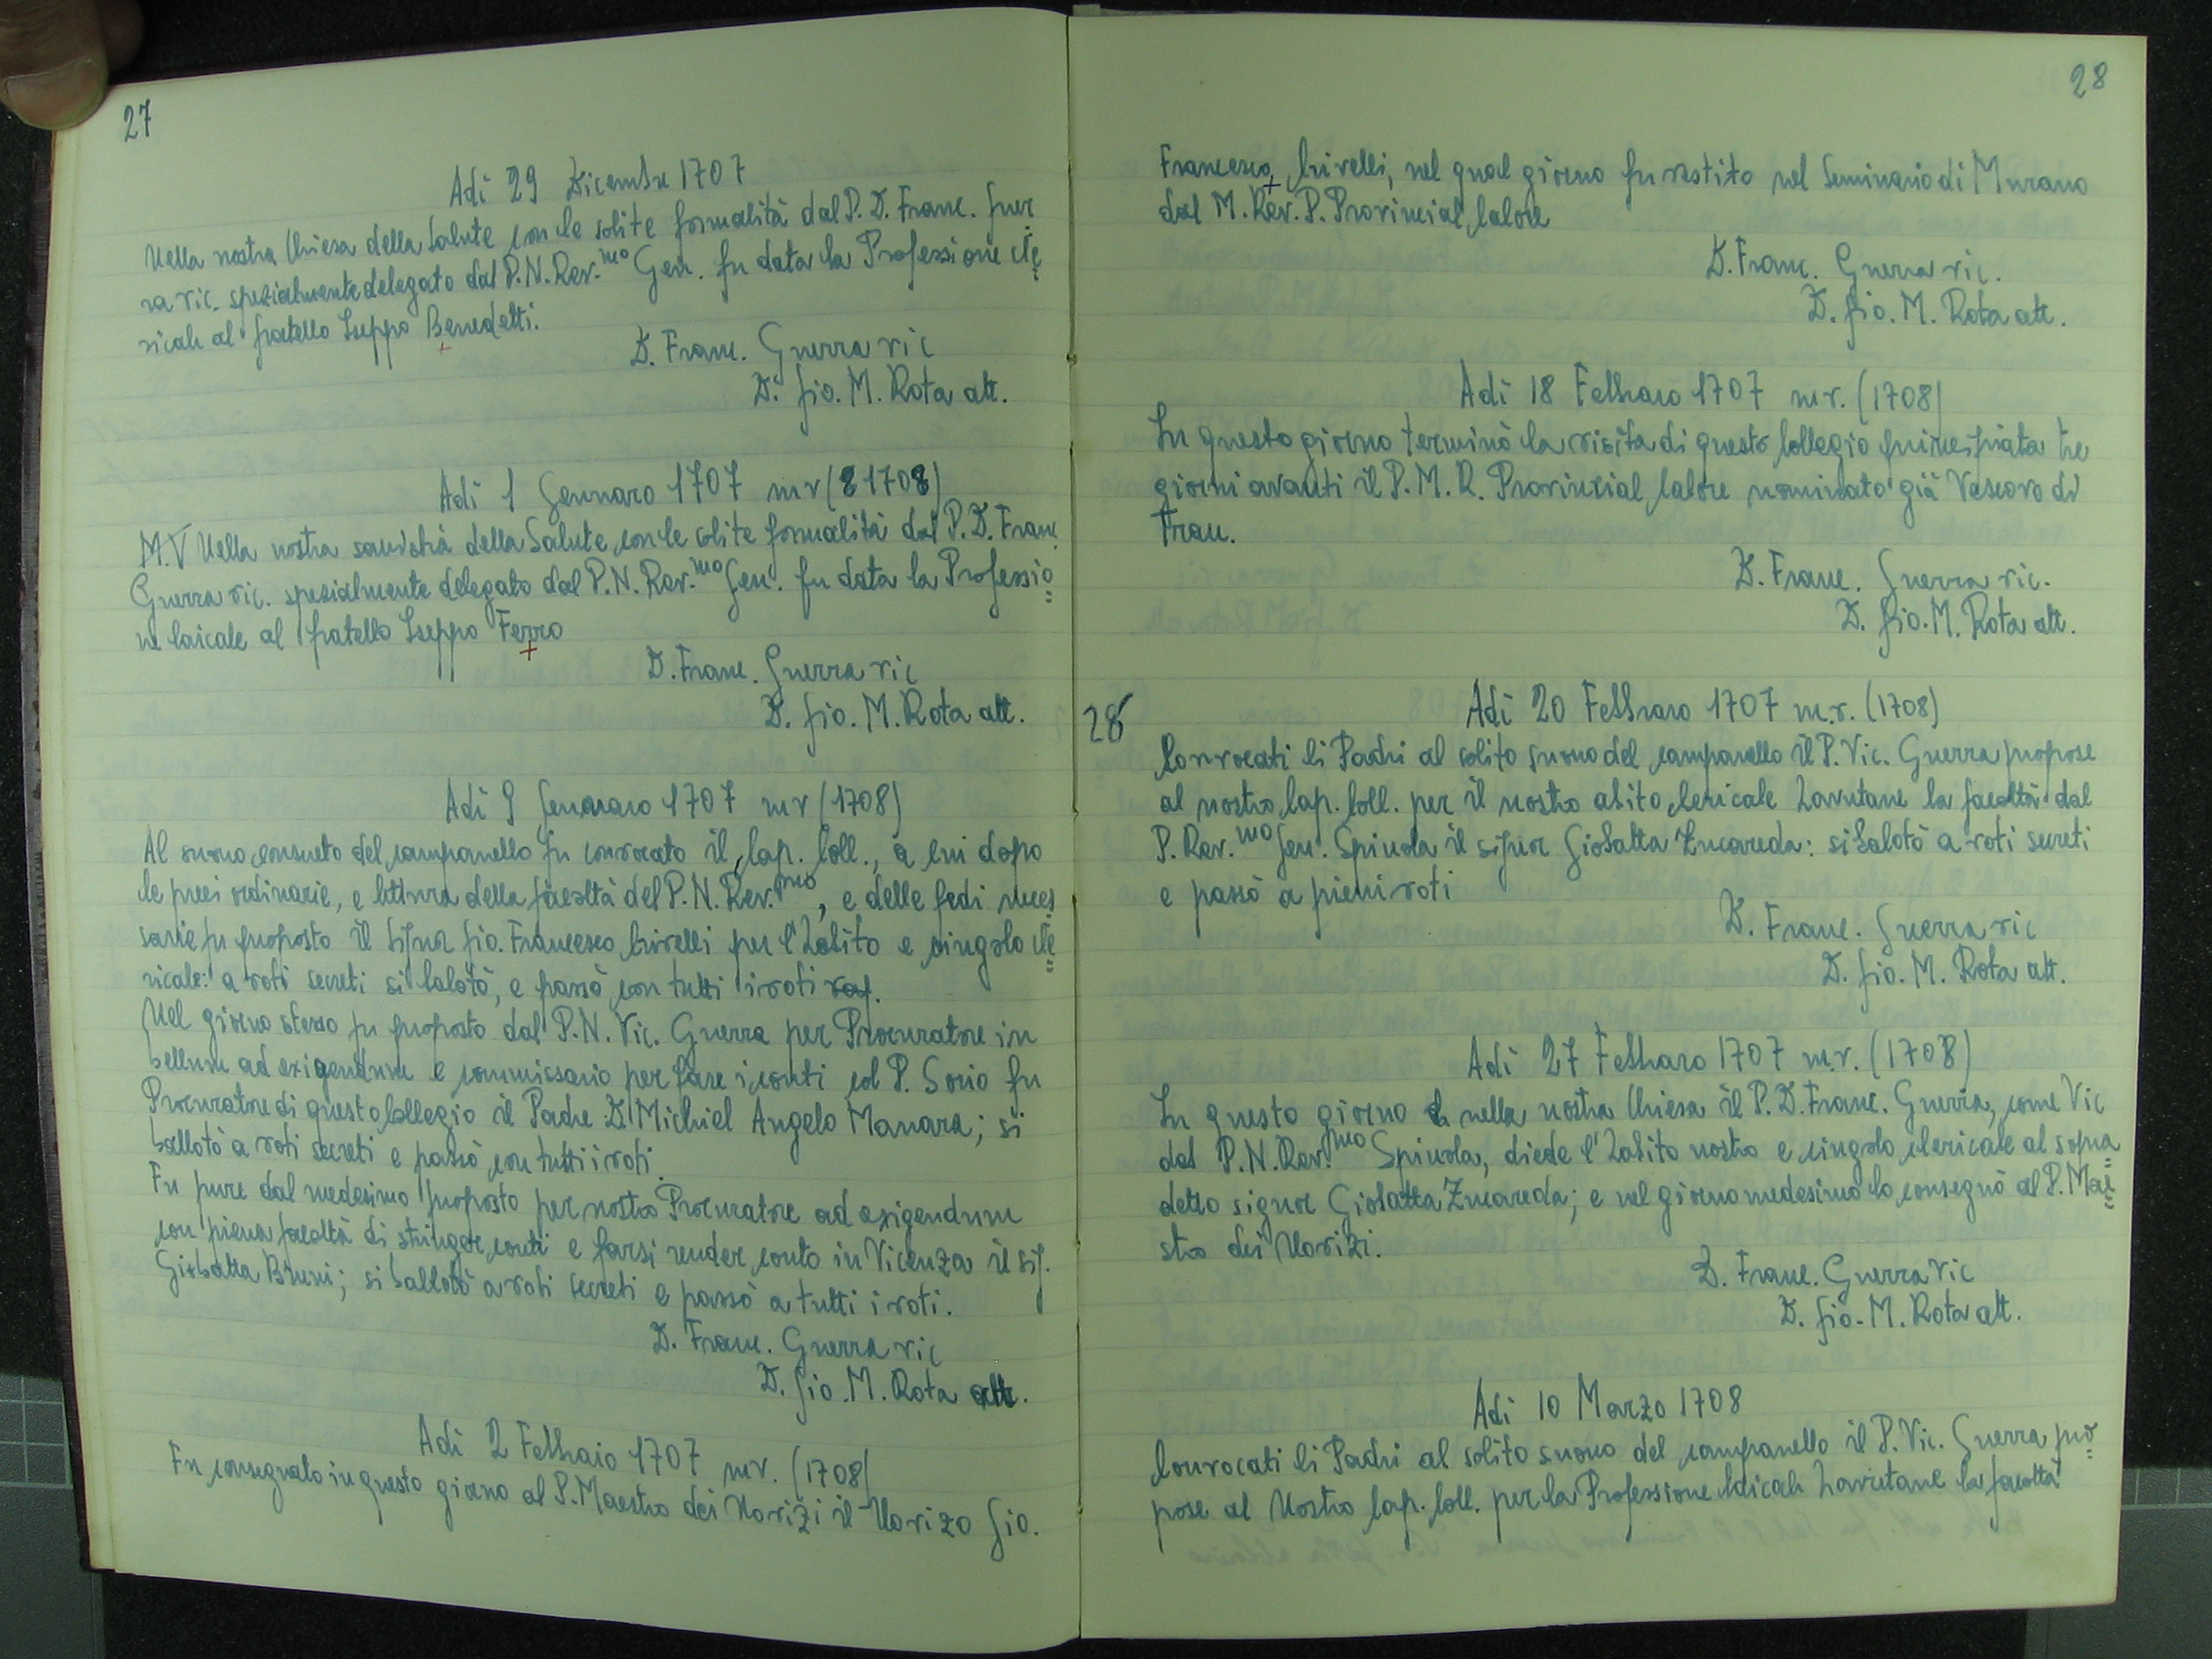 27
Adi 29 Dicembre 1707
Nella nostra Chiesa della Salute con le solite formalità dal P. D. Franc. Guer
ra vic. spezialmente delegato dal P. N. Rev.mo Gen. fu data la Professione cle
ricale al fratello Iseppo Benedetti.
D. Franc. Guerra vic
D. Gio. M. Rota att.
Adi 1 Gennaro 1707 mv (8 1708)
M.V Nella nostra della Salute con le solite formalità dal P. D. Franc
Guerra vic. spezialmente delegato dal P. N. Rev.mo Gen. fu data la Professio
ne laicale al fratello Iseppo Ferro
D. Franc. Guerra vic
D. Gio. M. Rota att.
Adi 9 Gennaro 1707 mv (1708)
Al suono consueto del campanello fu convocato il Cap. Coll., a cui dopo
le preci ordinarie, e lettura della facoltà del P. N. Rev.mo, e delle fedi neces
sarie fu proposto il Signor Gio. Francesco Crivelli per l'habito e cingolo cle
ricale: a voti secreti si balotò, e passò con tutti i voti
Nel giorno stesso fu proposto dal P. N. Vic. Guerra per Procuratore in
bellum ad exigendum e commissario per fare i conti col P. Sorio fu
Procuratore di questo Collegio il Padre D. Michiel Angelo Manara; si
ballotò a voti secreti e passò con tutti i voti.
Fu pure dal medesimo proposto per nostro Procuratore ad exigendum
con piena facoltà di stringer conti e farsi render conto in Vicenza il sig.
Giobatta Bruni; si ballotò a voti secreti e passò a tutti i voti.
D. Franc. Guerra vic
D. Gio. M. Rota att.
Adi 2 Febbraio 1707 mv. (1708)
Fu consegnato in questo giorno al P. Maestro dei Novizi il Novizo Gio.
28
Francesco Crivelli, nel qual giorno fu vestito nel Seminario di Murano
dal M. Rev. P. Provincial Calore
D. Franc. Guerra vic.
D. Gio. M. Rota att.
Adi 18 Febbraro 1707 m.v. (1708)
In questo giorno terminò la visita di questo Collegio tre
giorni avanti il P. M. R. Provincial Calore nominato già Vescovo di
Trau.
D. Franc. Guerra vic.
D. Gio. M. Rota att.
28
Adi 20 Febbraro 1707 m.v. (1708)
Convocati li Padri al solito suono del campanello il P. Vic. Guerra propose
al nostro Cap. Coll. per il nostro abito clericale havutane la facoltà dal
P. Rev.mo Gen. Spinola il signor Giobatta Zucareda: si balotò a voti secreti
e passò a pieni voti
D. Franc. Guerra vic
D. Gio. M. Rota att.
Adi 27 Febbraro 1707 m.v. (1708)
In questo giorno nella nostra Chiesa il P. D. Franc. Guerra, come Vic
del P. N. Rev.mo Spinola, diede l'habito nostro e cingolo clericale al sopra
detto signor Giobatta Zucareda; e nel giorno medesimo lo consegnò al P. Mae
stro dei Novizi.
D. Franc. Guerra Vic
D. Gio. M. Rota att.
Adi 10 Marzo 1708
Convocati li Padri al solito suono del campanello il P. Vic. Guerra pro
pose al Nostro Cap. Coll. per la Professione havutane la facoltà